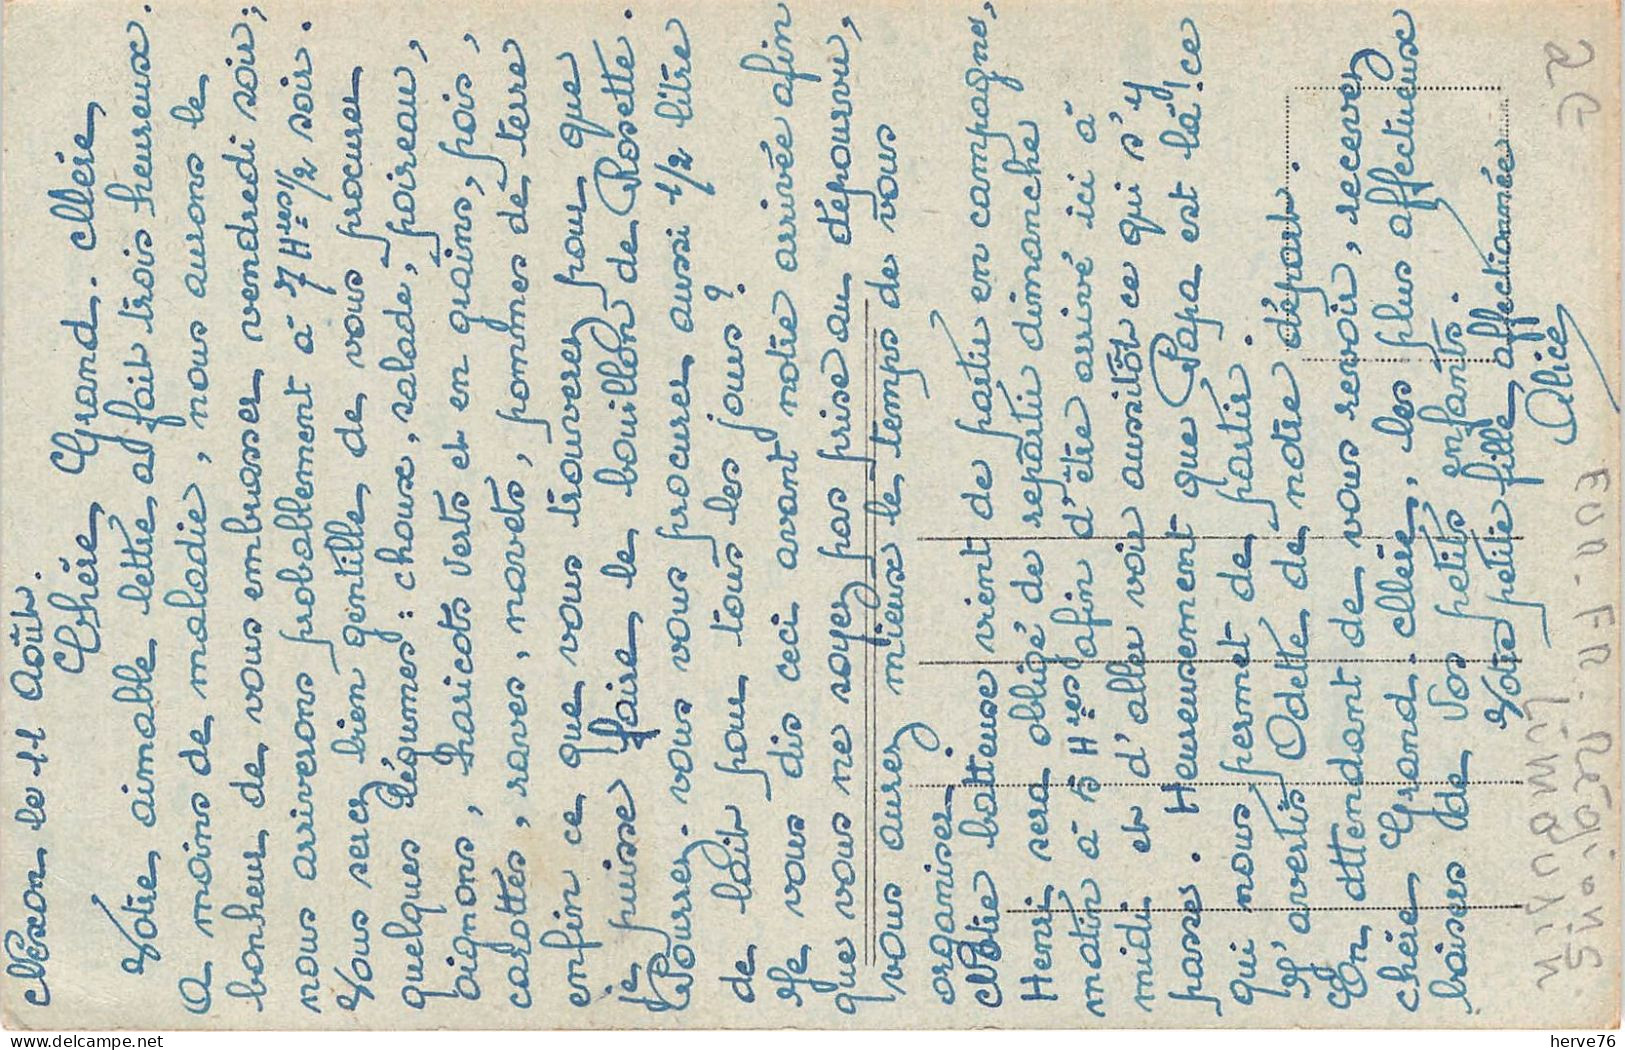 Nexon le 11 Août.
Chère Grand. Mère,
Votre aimable lettre a fait trois heureux.
A moins de maladie, nous aurons le
bonheur de vous embrasser vendredi soir;
nous arriverons probablement à 7 Hres 1/2 soir.
Vous serez bien gentille de vous procurer
quelques légumes: choux, salade, poireau,
oignons, haricots verts et en grains, pois,
carottes, raves, navets, pommes de terre
enfin ce que vous trouverez pour que
je puisse faire le bouillon de Rosette.
Pourrez. vous vous procurer aussi 1/2 litre
de lait pour tous les jours?
Je vous dis ceci avant notre arrivée afin
que vous ne soyez pas prise au dépourvu,
vous aurez mieux le temps de vous
organiser.
Notre batteuse vient de partir en campagne,
Henri sera obligé de repartir dimanche
matin à 5 Hres afin d'être arrivé ici à
midi et d'aller voir aussitôt ce qui s'y
passe. Heureusement que Papa est là! ce
qui nous permet de partir.
J'avertis Odette de notre départ.
En attendant de vous revoir, recevez
chère Grand. Mère, les plus affectueux
baisers de vos petits enfants.
Votre petite fille affectionnée
Alice